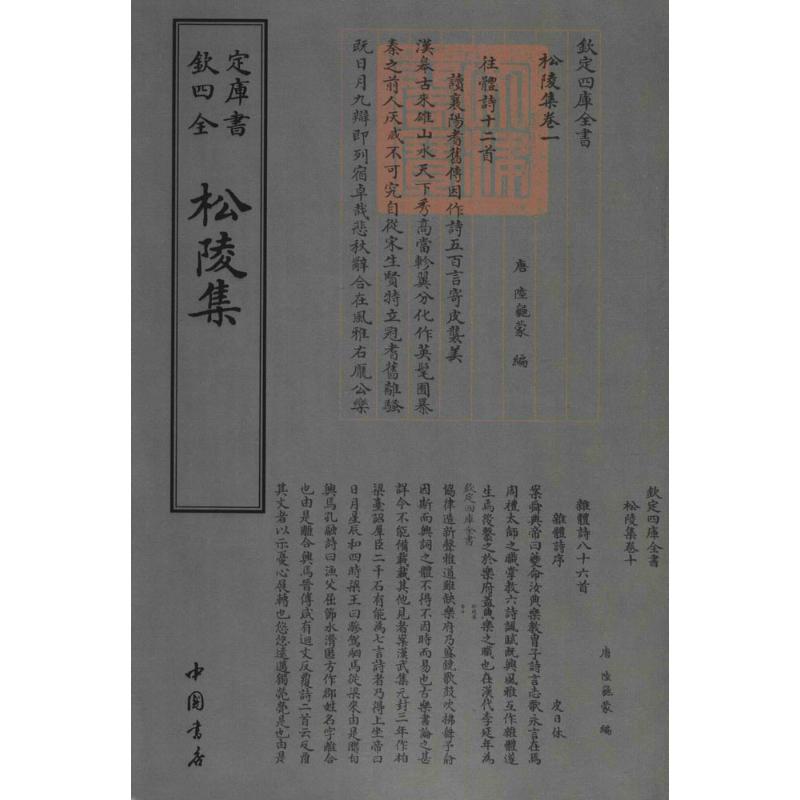 欽定
四庫
全書
松陵集
中国书店
欽定四庫全書
松陵集卷一
唐 陸龜蒙 編
往體詩十二首
讀襄陽耆舊傳因作詩五百言寄皮襲美
漢皋古來雄山水天下秀高當軫翼分化作英髦囿暴
秦之前人灰滅不可究自從宋生賢特立冠耆舊離騷
既日月九辯即列宿卓哉悲秋辭合在風雅右龐公樂
欽定四庫全書
松陵集卷十
唐 陸龜蒙 編
雜體詩八十六首
雜體詩序 皮日休
案舜典帝曰夔命汝典樂教胄子詩言志歌永言在焉
周禮太師之職掌教六詩諷賦既興風雅互作雜體遂
生焉後繫之於樂府蓋典樂之職也在漢代李延年為
欽定四庫全書
協律造新聲雅道雖缺樂府乃盛鐃歌鼓吹拂舞予俞
因斯而興詞之體不得不因時而易也古樂書論之甚
詳今不能備載載其他見者案漢武集元封三年作柏
梁臺詔羣臣二千石有能為七言詩者乃得上坐帝曰
日月星辰和四時梁王曰驂駕駟馬從梁來由是聯句
興焉孔融詩曰漁父屈節水潛匿方作郡姓名字離合
也由是離合興焉晉傅咸有迴文反覆詩二首云反覆
其文者以示憂心展轉也悠悠遠邁獨煢煢是也由是